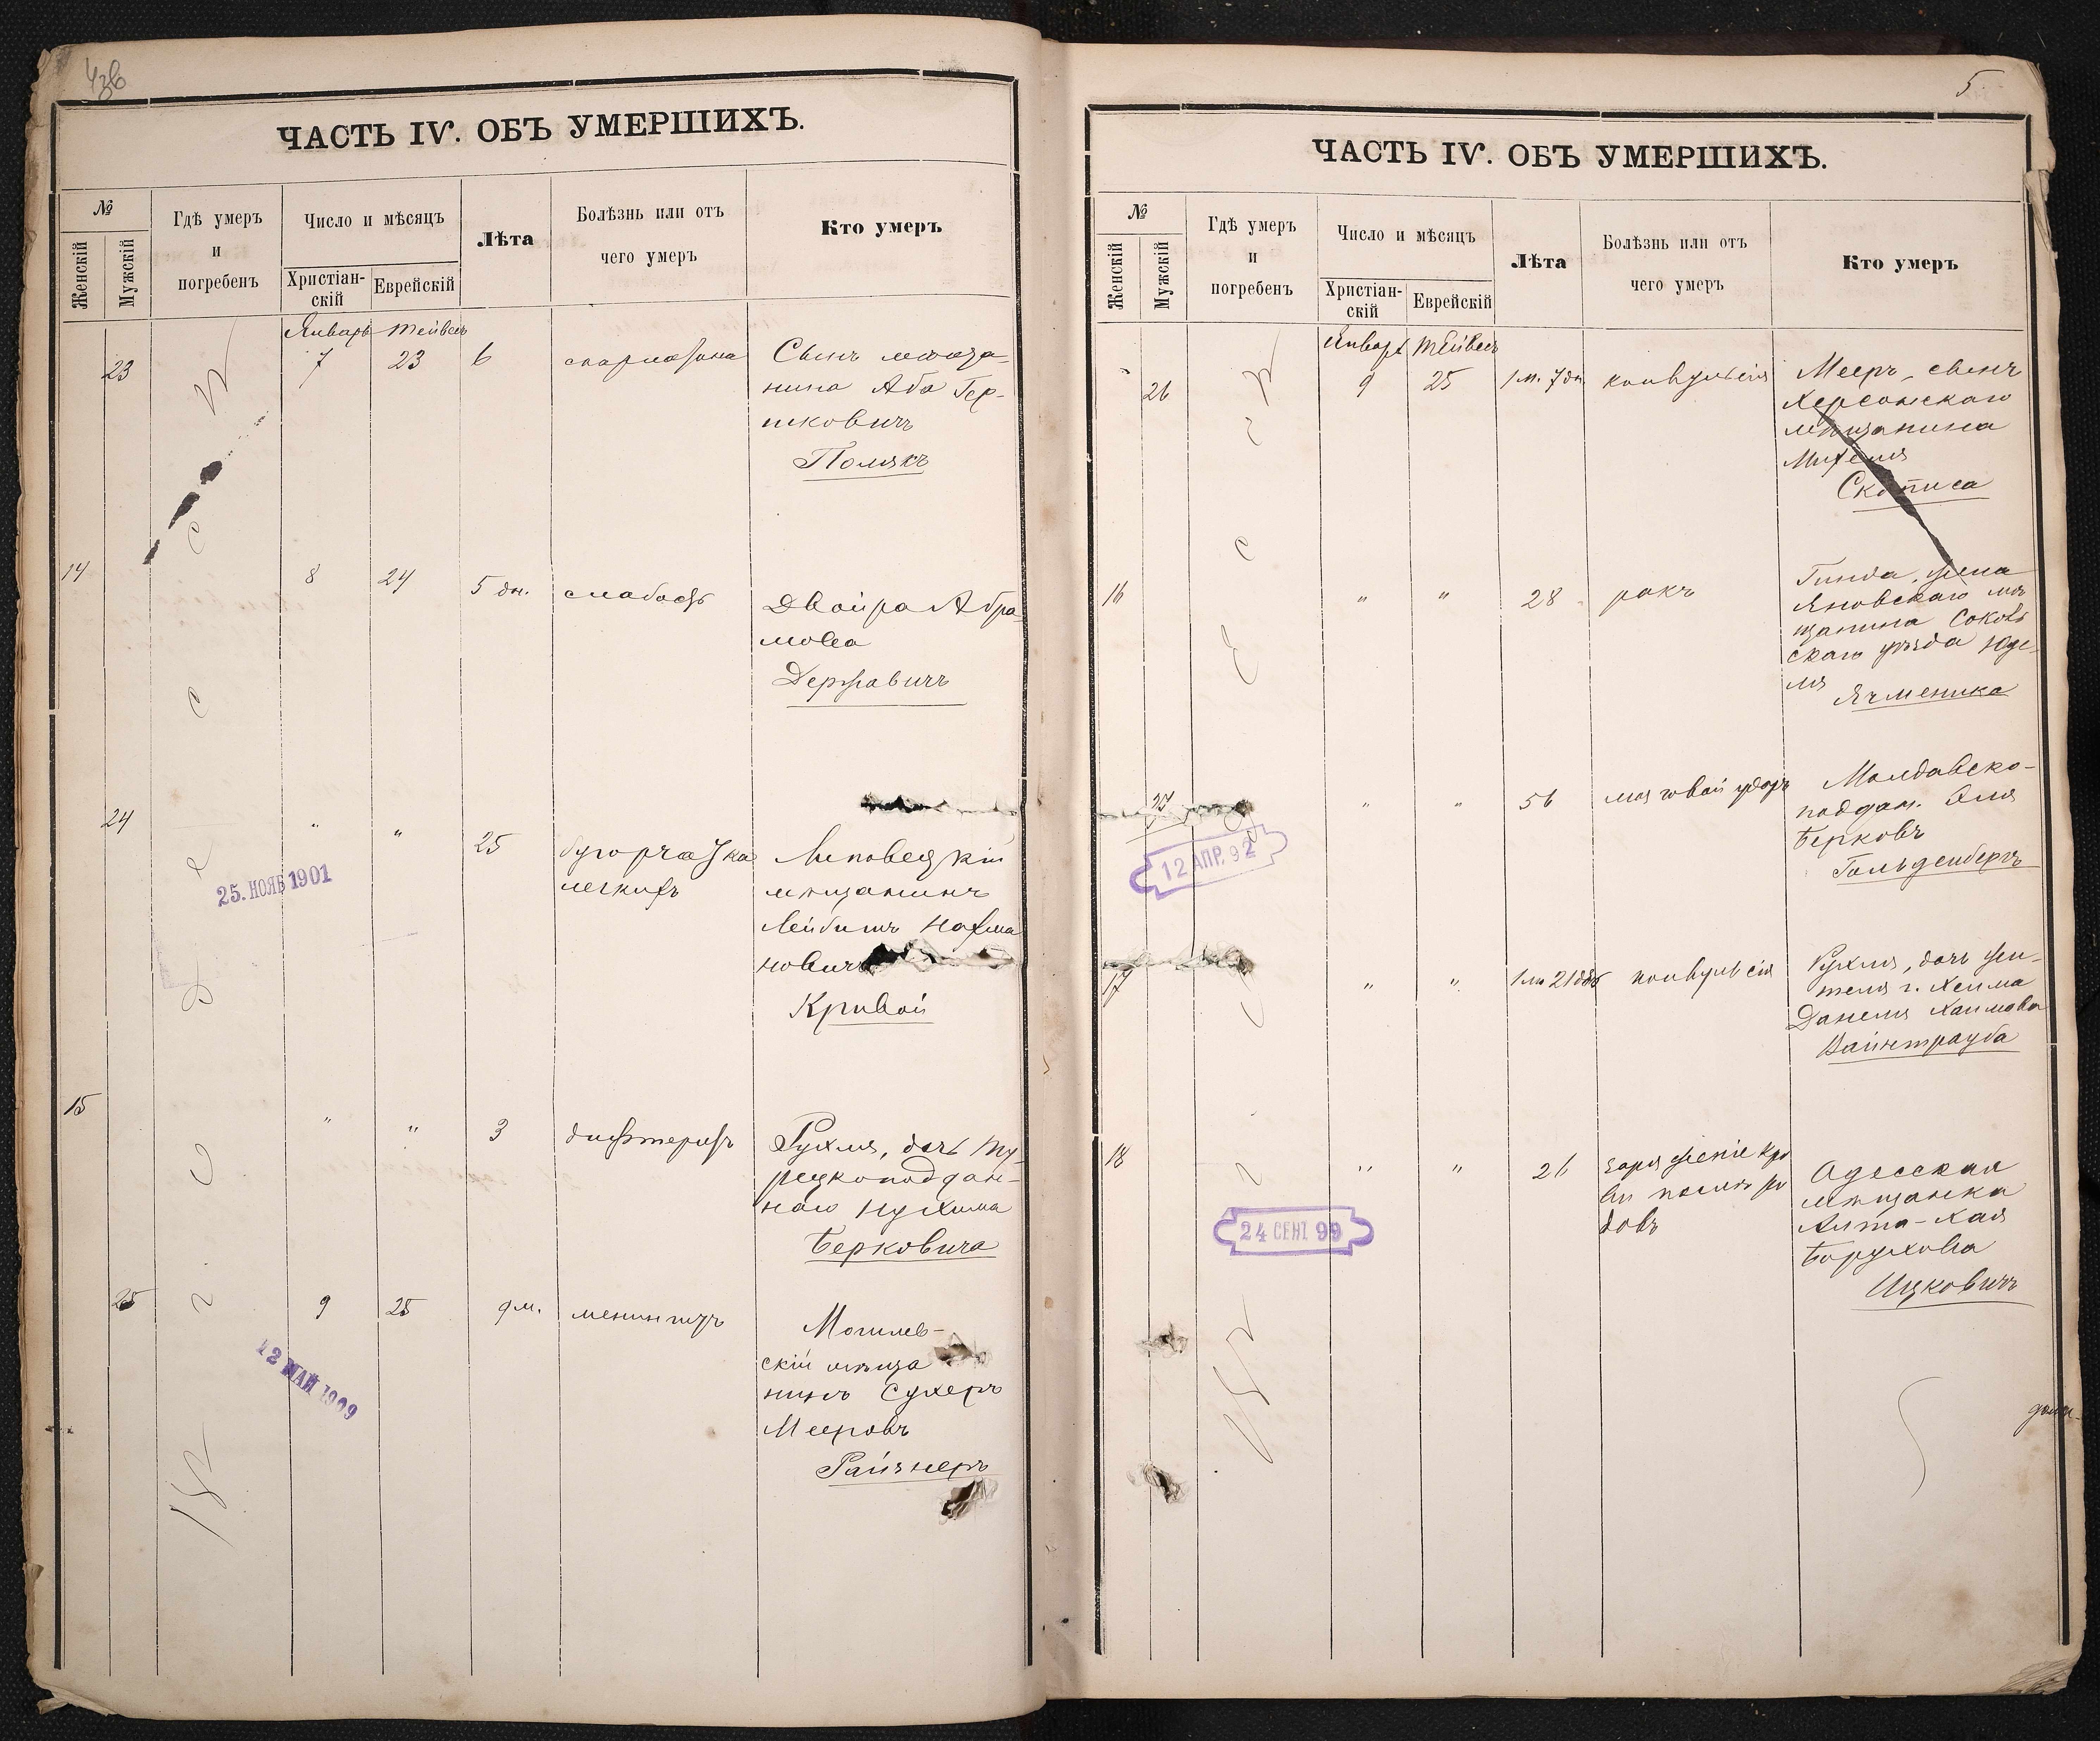 ЧАСТЬ IV. ОБЪ УМЕРШИХЪ.
№
Женскій
Мужскій
Гдѣ умеръ
и
погребенъ
Число и мѣсяцъ
Христіан-
скій
Еврейскій
Лѣта
Болѣзнь или отъ
чего умеръ
Кто умеръ
Январь Тейвесъ
23 7 23 6 скарлатина
Сынъ мѣща-
нина Аба Гер-
шковичъ
Полякъ
14 8 24 5 дн. слабость
Двойра Абра-
мова
Державичъ
24 " " 25 бугорчатка
легкихъ
Липовецкій
мѣщанинъ
Лейбишъ Нахма
новичъ
Кривой
25. НОЯБ 1901
15 " " 3 дифтеритъ
Рухля, дочь Ту-
рецкоподдан-
наго Нухима
Берковича
25 9 25 9 м. менингитъ
Могилев-
скій мѣща
нинъ Сухеръ
Мееровъ
Райзнеръ
12 МАЙ 1909
г. Одесса
5
ЧАСТЬ IV. ОБЪ УМЕРШИХЪ.
№
Женскій
Мужскій
Гдѣ умеръ
и
погребенъ
Число и мѣсяцъ
Христіан-
скій
Еврейскій
Лѣта
Болѣзнь или отъ
чего умеръ
Кто умеръ
Январь Тейвесъ
26 9 25 1 м. 7 дн. конвульсія
Мееръ, сынъ
Херсонскаго
мѣщанина
Михеля
Скаписа
16 " " 28 ракъ
Гинда, жена
Яновскаго мѣ
щанина Соколь
скаго уѣзда Юде-
ля
Ячменика
27 " " 56 мозговой ударъ
Молдавско-
поддан. Эля
Берковъ
Гольденбергъ
12 АПР. 92
17 " " конвульсія
Рухля, дочь жи-
теля г. Хелма
Данеля Хаимова
Вайнтрауба
18 " " 26 зараженіе кро
ви послѣ ро
довъ
Одесская
мѣщанка
Хита-Хая
Борухова
Ицковичъ
24 СЕНТ 99